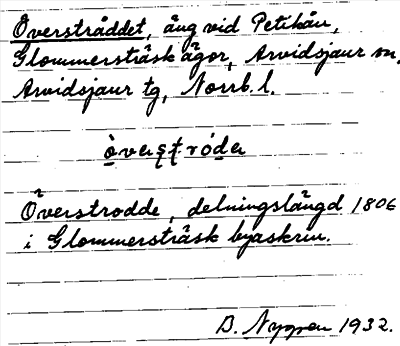 Överströddet, äng vid Petikån,
Glommersträsk ägor, Arvidsjaur sn,
Arvidsjaur tg, Norrb. l.
òvaʂʈróda
Överstrodde, delningslängd 1806
i Glommersträsk byaskrin.
B. Nygren 1932.